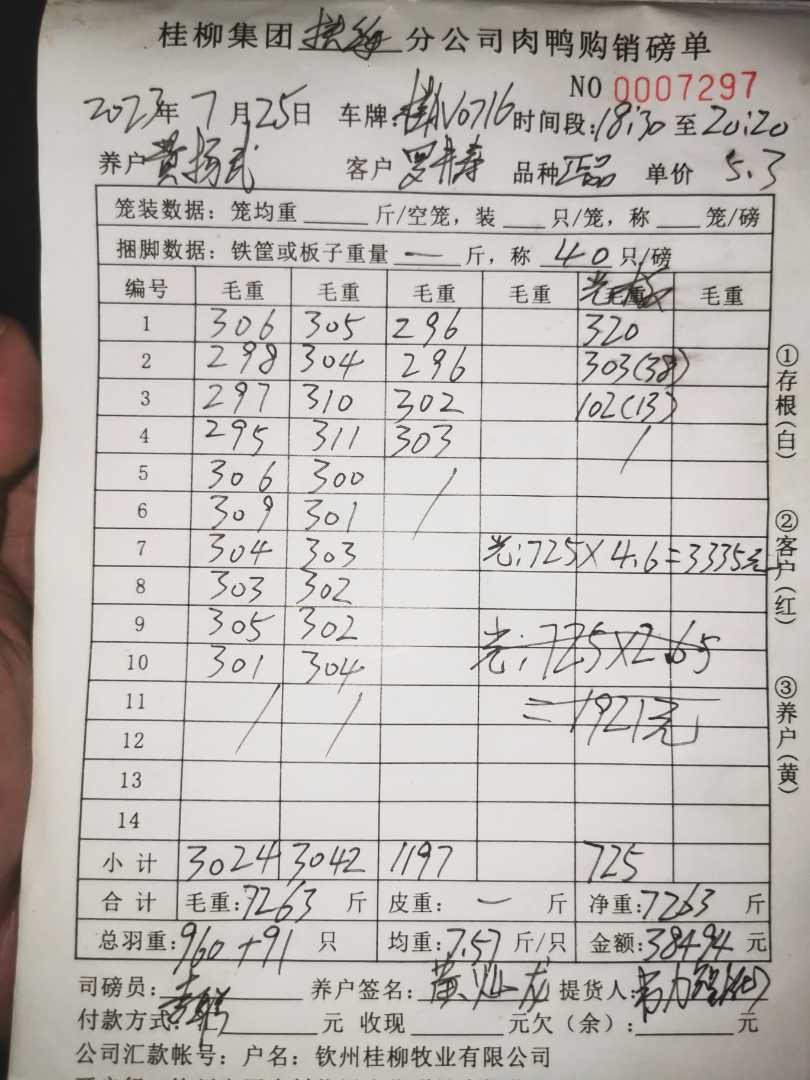 桂柳集团 分公司肉鸭购销磅单
NO 0007297
2023年7月25日 车牌:桂AV0716 时间段:18:30 至 20:20
养户 黄扬武 客户 罗 寿 品种 正品 单价 5.3
笼装数据: 笼均重 斤/空笼, 装 只/笼, 称 笼/磅
捆脚数据: 铁筐或板子重量 一 斤, 称 40 只/磅
编号 毛重 毛重 毛重 毛重 毛重 毛重
1 306 305 296 320
2 298 304 296 303(38)
3 297 310 302 102(13)
4 295 311 303 /
5 306 300 /
6 309 301
7 304 303 光:725×4.6=3335元
8 303 302
9 305 302 光:725×2.65
10 301 304
11 / / =1921元
12
13
14
小计 3024 3042 1197 725
合计 毛重:7263 斤 皮重: 一 斤 净重:7263 斤
总羽重:960+91 只 均重:7.57 斤/只 金额:38494 元
司磅员: 养户签名:黄灿龙 提货人:
付款方式: 元 收现 元欠(余): 元
公司汇款帐号: 户名: 钦州桂柳牧业有限公司
①存根(白)
②客户(红)
③养户(黄)